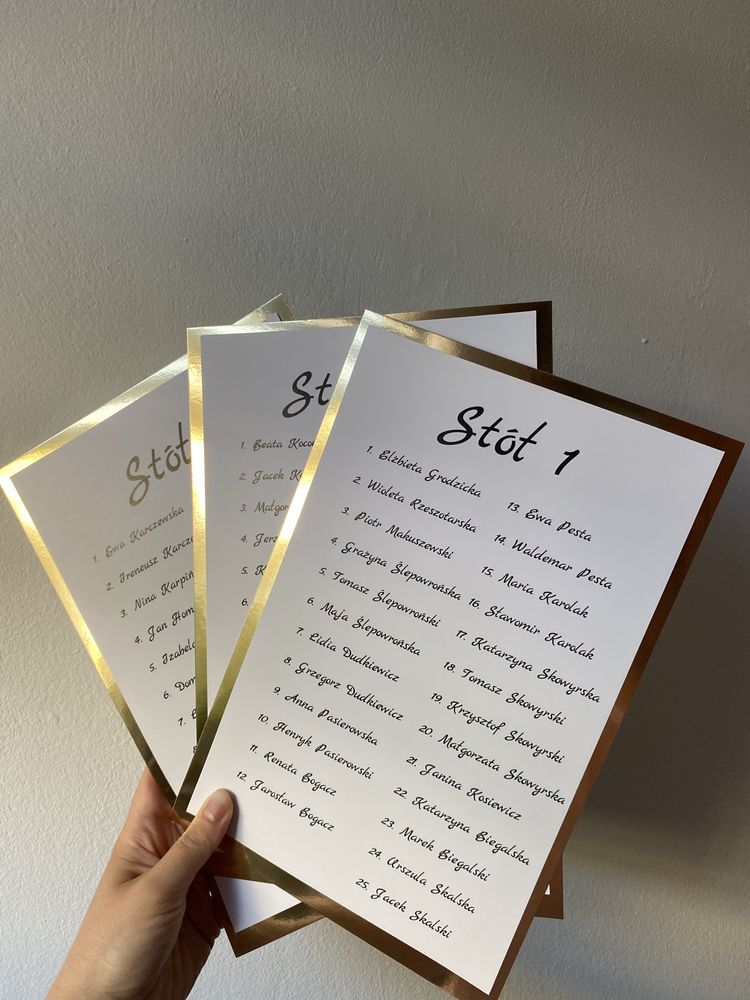 Stół
1. Ewa Karczewska
2. Ireneusz
3. Nina
4. Jan
5.
6.
7.
8.
Stół
1. Beata
2. Jacek
3.
4.
5.
6.
Stół 1
1. Elżbieta Grodzicka
2. Wioleta Rzeszotarska
3. Piotr Makuszewski
4. Grażyna Ślepowrońska
5. Tomasz Ślepowroński
6. Maja Ślepowrońska
7. Lidia Dudkiewicz
8. Grzegorz Dudkiewicz
9. Anna Pasierowska
10. Henryk Pasierowski
11. Renata Bogacz
12. Jarosław Bogacz
13. Ewa Pesta
14. Waldemar Pesta
15. Maria Karolak
16. Sławomir Karolak
17. Katarzyna Skowyrska
18. Tomasz Skowyrski
19. Krzysztof Skowyrski
20. Małgorzata Skowyrska
21. Janina Kosiewicz
22. Katarzyna Biegalska
23. Marek Biegalski
24. Urszula Skalska
25. Jacek Skalski